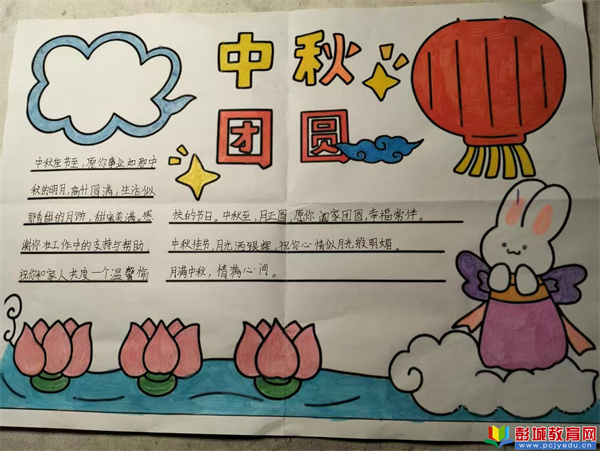 中秋
团圆
中秋佳节至,愿你事业如那中
秋的明月,高升圆满,生活似
那香甜的月饼,甜蜜美满。感
谢你在工作中的支持与帮助,
祝你和家人共度一个温馨愉
快的节日。中秋至,月正圆,愿你阖家团圆,幸福常伴。
中秋佳节,月光洒银辉,祝你心情似月光般明媚。
月满中秋,情满心间。
彭城教育网
www.pcjyedu.cn